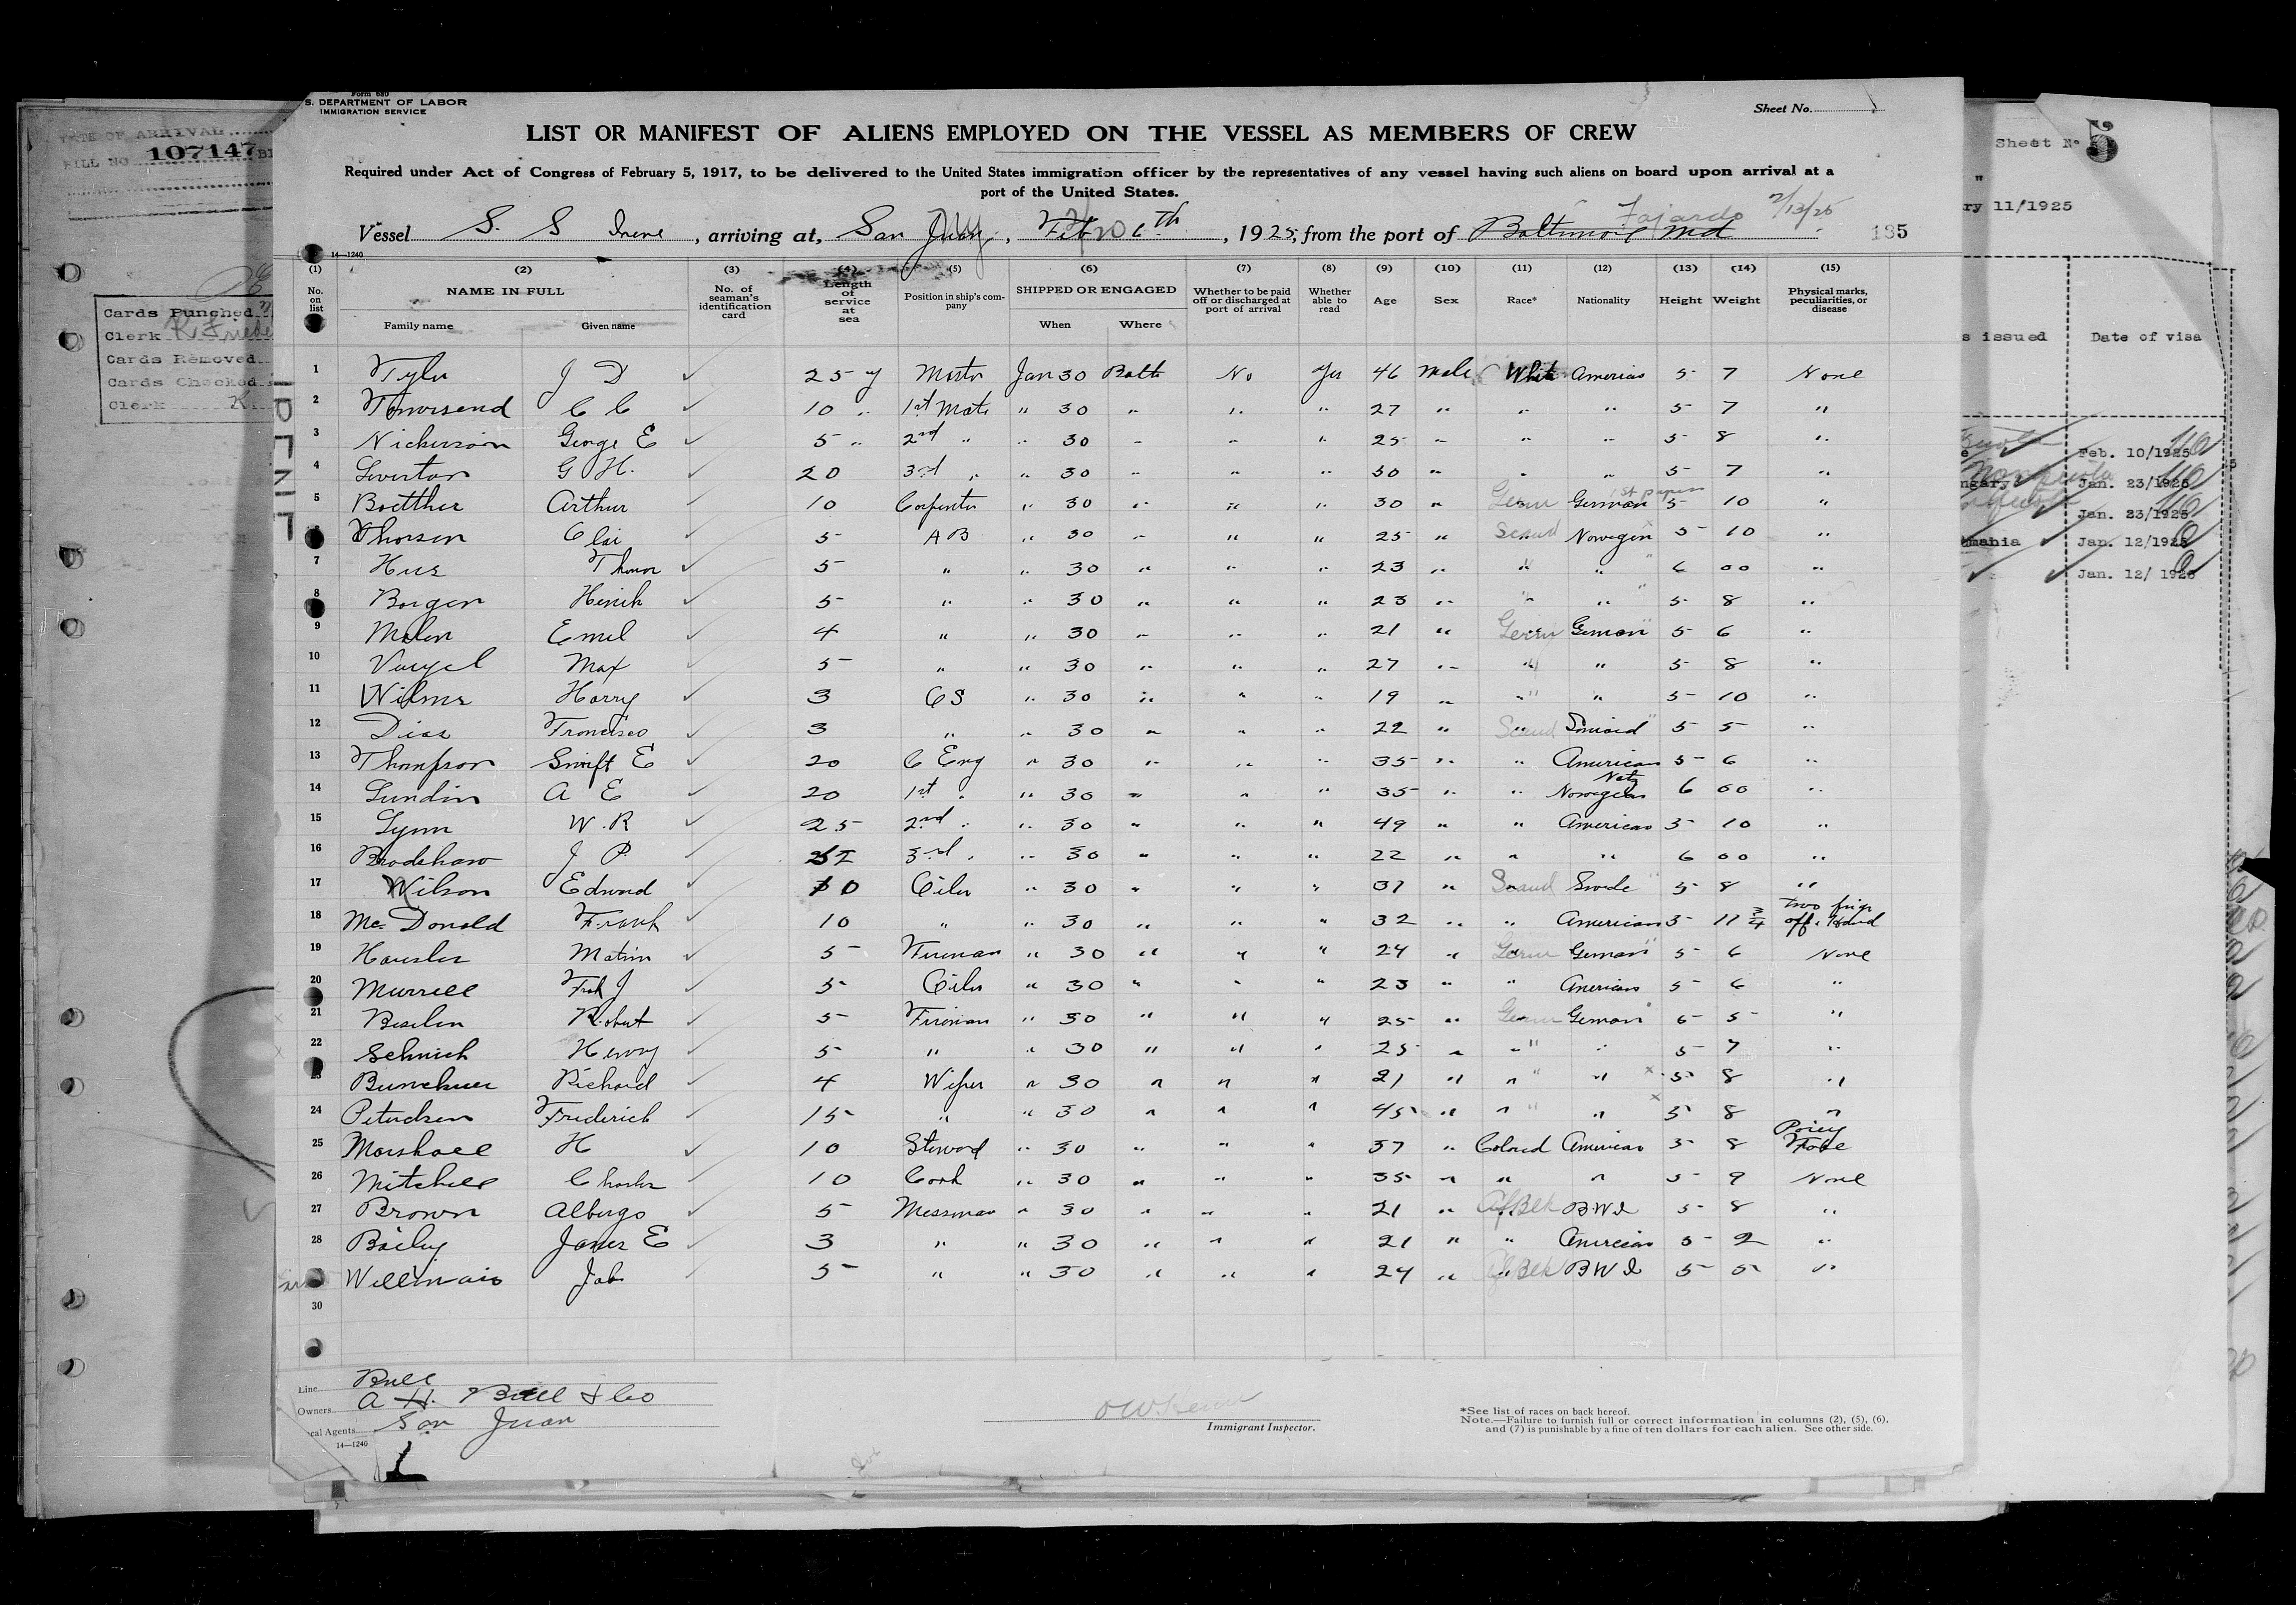 Form 680
S. DEPARTMENT OF LABOR
IMMIGRATION SERVICE
Sheet No.
LIST OR MANIFEST OF ALIENS EMPLOYED ON THE VESSEL AS MEMBERS OF CREW
Required under Act of Congress of February 5, 1917, to be delivered to the United States immigration officer by the representatives of any vessel having such aliens on board upon arrival at a
port of the United States.
Fajardo 2/13/25
Vessel S. S Irene, arriving at, San Juan, Feb 6th, 1925, from the port of Baltimore Md
135
14—1240
(1) (2) (3) (4) (5) (6) (7) (8) (9) (10) (11) (12) (13) (14) (15)
No. on list
NAME IN FULL
Family name Given name
No. of seaman's identification card
Length of service at sea
Position in ship's company
SHIPPED OR ENGAGED
When Where
Whether to be paid off or discharged at port of arrival
Whether able to read
Age Sex Race* Nationality Height Weight
Physical marks, peculiarities, or disease
1 Tyler J D 25 y Master Jan 30 Balto No Yes 46 Male White American 5 7 None
2 Townsend C C 10 " 1st Mate " 30 " " " 27 " " " 5 7 "
3 Nickerson George E 5 " 2nd " " 30 " " " 25 " " " 5 8 "
4 G H. 20 3rd " " 30 " " " 30 " " " 5 7 "
5 Boetther Arthur 10 Carpenter " 30 " " " 30 " Germ German 1st papers 5 10 "
6 Thorsen Olai 5 AB " 30 " " " 25 " Scand Norwegen 5 10 "
7 Hus Thomor 5 " " 30 " " " 23 " " " 6 00 "
8 Borgen Henik 5 " " 30 " " " 23 " " " 5 8 "
9 Emil 4 " " 30 " " " 21 " Germ German 5 6 "
10 Max 5 " " 30 " " " 27 " " " 5 8 "
11 Wilms Harry 3 OS " 30 " " " 19 " " " 5 10 "
12 Dias Francisco 3 " " 30 " " " 22 " Scand 5 5 "
13 Thompson Swift E 20 C Eng " 30 " " " 35 " " American 5 6 "
14 Lundin A E 20 1st " " 30 " " " 35 " " Natz Norwegian 6 00 "
15 Lynn W. R 25 2nd " " 30 " " " 49 " " American 5 10 "
16 Bradshaw J P. 3rd " " 30 " " " 22 " " " 6 00 "
17 Wilson Edward 10 Oiler " 30 " " " 37 " Scand Swede 5 8 "
18 McDonald Frank 10 " " 30 " " " 32 " " American 5 11 3/4 two fingr off. Hand
19 Haesler Matin 5 Fireman " 30 " " " 24 " Germ German 5 6 None
20 Murrell Frak J 5 Oiler " 30 " " " 23 " " American 5 6 "
21 Robert 5 Fireman " 30 " " " 25 " Germ German 5 "
22 Schnich Henry 5 " " 30 " " " 25 " " " 5 7 "
23 Richard 4 Wiper " 30 " " " 21 " " " 5 8 "
24 Frederich 15 " " 30 " " " 45 " " " 5 8 "
25 Marshall H 10 Steward " 30 " " " 37 " Colored American 5 8 Face
26 Mitchell Charles 10 Cook " 30 " " " 35 " " " 5 9 None
27 Brown Albergo 5 Messman " 30 " " " 21 " Af Blk B.W.I 5 8 "
28 Baily James E 3 " " 30 " " " 21 " " American 5 2 "
Willimais Job 5 " " 30 " " " 24 " Af Blk B W I 5 5 "
30
Line Bull
Owners A H. Bull & Co
cal Agents San Juan
14—1240
Immigrant Inspector.
*See list of races on back hereof.
Note.—Failure to furnish full or correct information in columns (2), (5), (6),
and (7) is punishable by a fine of ten dollars for each alien. See other side.
DATE OF ARRIVAL
BILL NO. 107147
Cards Punched
Clerk K. Friede
Cards Removed
Cards Checked
Clerk K.
Sheet No 5
"
ry 11/1925
s issued Date of visa
Feb. 10/1925
ngary Jan. 23/1925
Jan. 23/1925
mania Jan. 12/1925
Jan. 12/ 1925